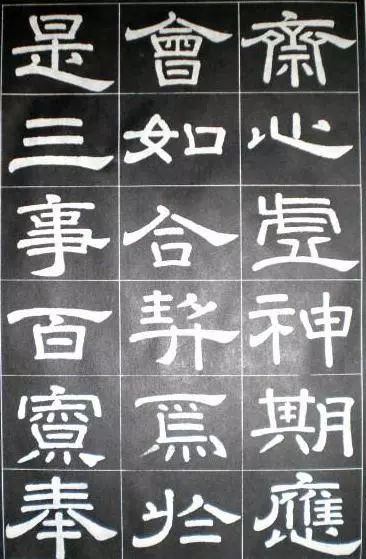 齋心虛神期應
會如合契焉於
是三事百寮奉